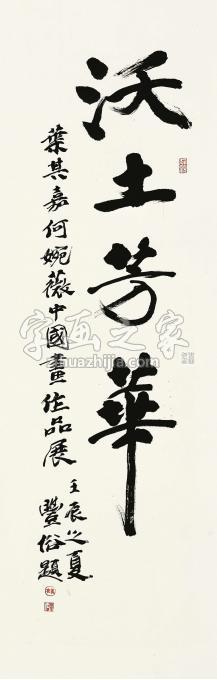 沃土芳華
葉其嘉何婉薇中國畫作品展
壬辰之夏
豐俗題
字画之家
zihuazhijia.com